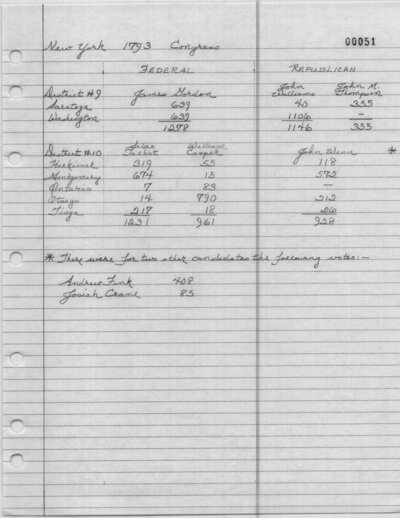 New York 1793 Congress 00051
FEDERAL REPUBLICAN
District #9 James Gordon John Williams John M. Thompson
Saratoga 639 40 355
Washington 639 1106 —
1278 1146 355
District #10 Silas Talbot William Cooper John Winn *
Herkimer 319 55 118
Montgomery 674 15 572
Ontario 7 83 —
Otsego 14 790 212
Tioga 217 18 26
1231 961 928
* There were for two other candidates the following votes:—
Andrew Fink 408
Josiah Crane 85